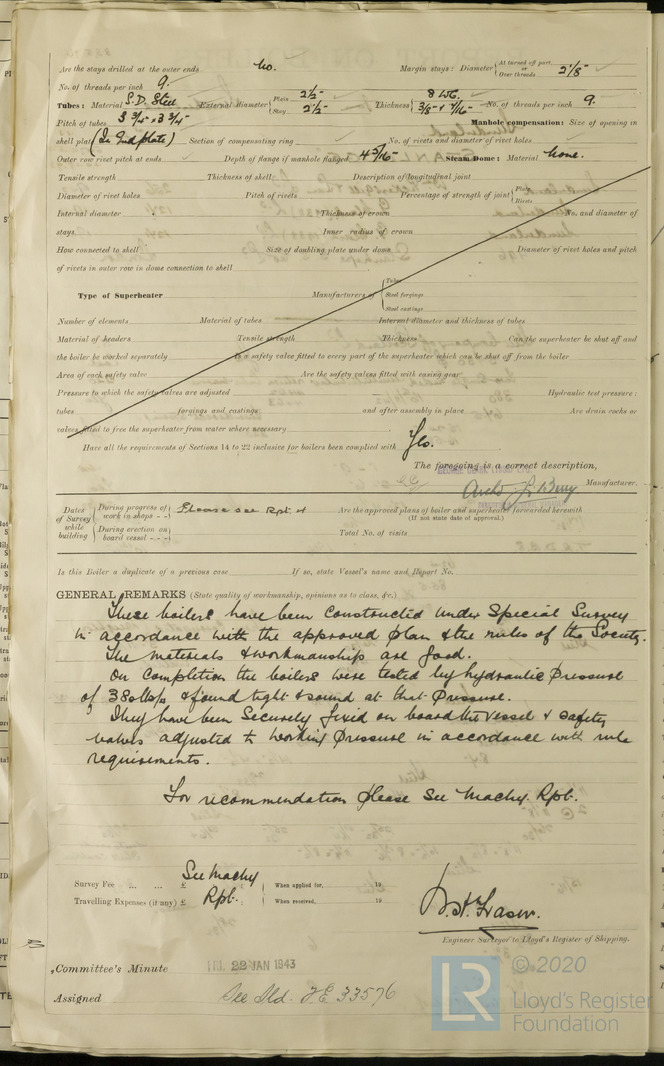 Are the stays drilled at the outer ends No. Margin stays: Diameter { At turned off part, or Over threads 2 1/8"
No. of threads per inch 9.
Tubes: Material S.D. Steel External diameter { Plain 2 1/2" Stay 2 1/2" Thickness { 8 WG. 3/8" & 7/16" No. of threads per inch 9.
Pitch of tubes 3 3/4" x 3 3/4" Manhole compensation: Size of opening in
shell plate (In End plate) Section of compensating ring No. of rivets and diameter of rivet holes
Outer row rivet pitch at ends Depth of flange if manhole flanged 4 5/16" Steam Dome: Material None.
Tensile strength Thickness of shell Description of longitudinal joint
Diameter of rivet holes Pitch of rivets Percentage of strength of joint { Plate Rivets
Internal diameter Thickness of crown No. and diameter of
stays Inner radius of crown
How connected to shell Size of doubling plate under dome Diameter of rivet holes and pitch
of rivets in outer row in dome connection to shell
Type of Superheater Manufacturers of { Tubes Steel forgings Steel castings
Number of elements Material of tubes Internal diameter and thickness of tubes
Material of headers Tensile strength Thickness Can the superheater be shut off and
the boiler be worked separately Is a safety valve fitted to every part of the superheater which can be shut off from the boiler
Area of each safety valve Are the safety valves fitted with easing gear
Pressure to which the safety valves are adjusted Hydraulic test pressure:
tubes forgings and castings and after assembly in place Are drain cocks or
valves fitted to free the superheater from water where necessary
Have all the requirements of Sections 14 to 22 inclusive for boilers been complied with Yes.
The foregoing is a correct description,
Manufacturer.
Dates of Survey while building { During progress of work in shops - - Please see Rpt 4 Are the approved plans of boiler and superheater forwarded herewith
(If not state date of approval.)
During erection on board vessel - - - Total No. of visits
Is this Boiler a duplicate of a previous case If so, state Vessel's name and Report No.
GENERAL REMARKS (State quality of workmanship, opinions as to class, &c.)
These boilers have been constructed under Special Survey
in accordance with the approved plan & the rules of the Society.
The materials & workmanship are good.
On completion the boilers were tested by hydraulic pressure
of 380 lbs & found tight & sound at that pressure.
They have been securely fixed on board the vessel & safety
valves adjusted to working pressure in accordance with rule
requirements.
For recommendation please see Machy. Rpt.
Survey Fee ... ... £ See Machy When applied for, 19
Travelling Expenses (if any) £ Rpt. When received, 19
Fraser.
Engineer Surveyor to Lloyd's Register of Shipping.
Committee's Minute FRI. 22 JAN 1943
Assigned See Sld. F.E. 33576
LR ©2020
Lloyd's Register
Foundation